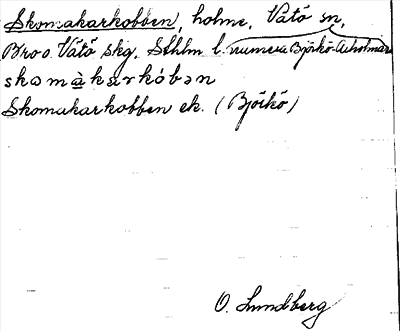 Skomakarkobben, holme, Vätö sn,
Bro o. Vätö skg, Sthlm l. numera Björkö-Arholma
skomàkarkóbən
Skomakarkobben ek. (Björkö)
O. Lundberg